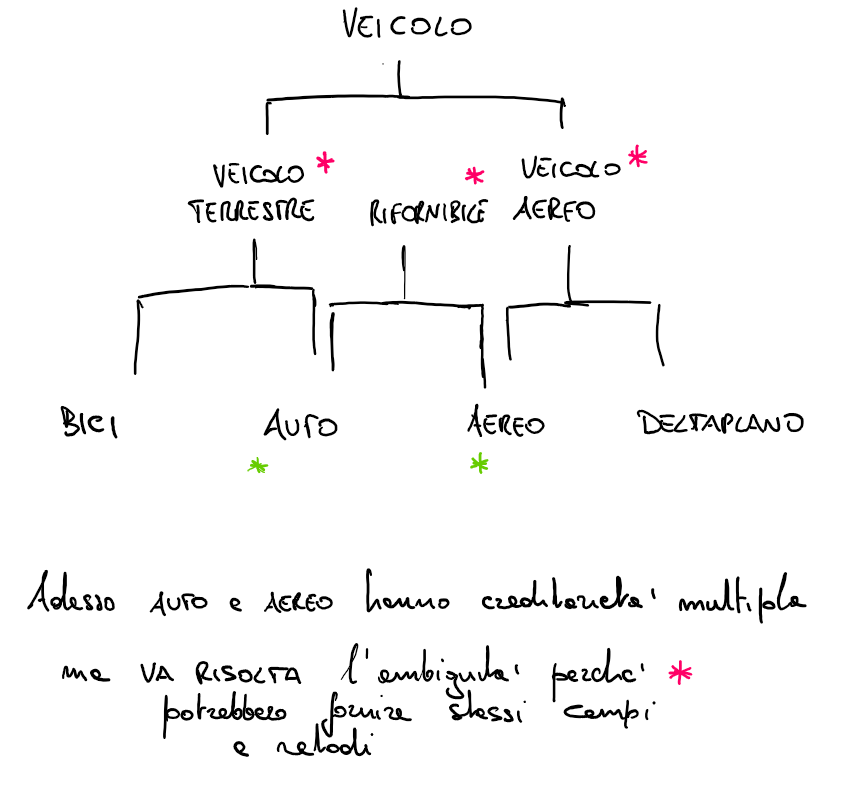 VEICOLO
VEICOLO * * VEICOLO *
TERRESTRE RIFORNIBILE AEREO
BICI AUTO AEREO DELTAPLANO
* *
Adesso AUTO e AEREO hanno ereditarietà multipla
ma VA RISOLTA l'ambiguità perché *
potrebbero fornire stessi campi
e metodi